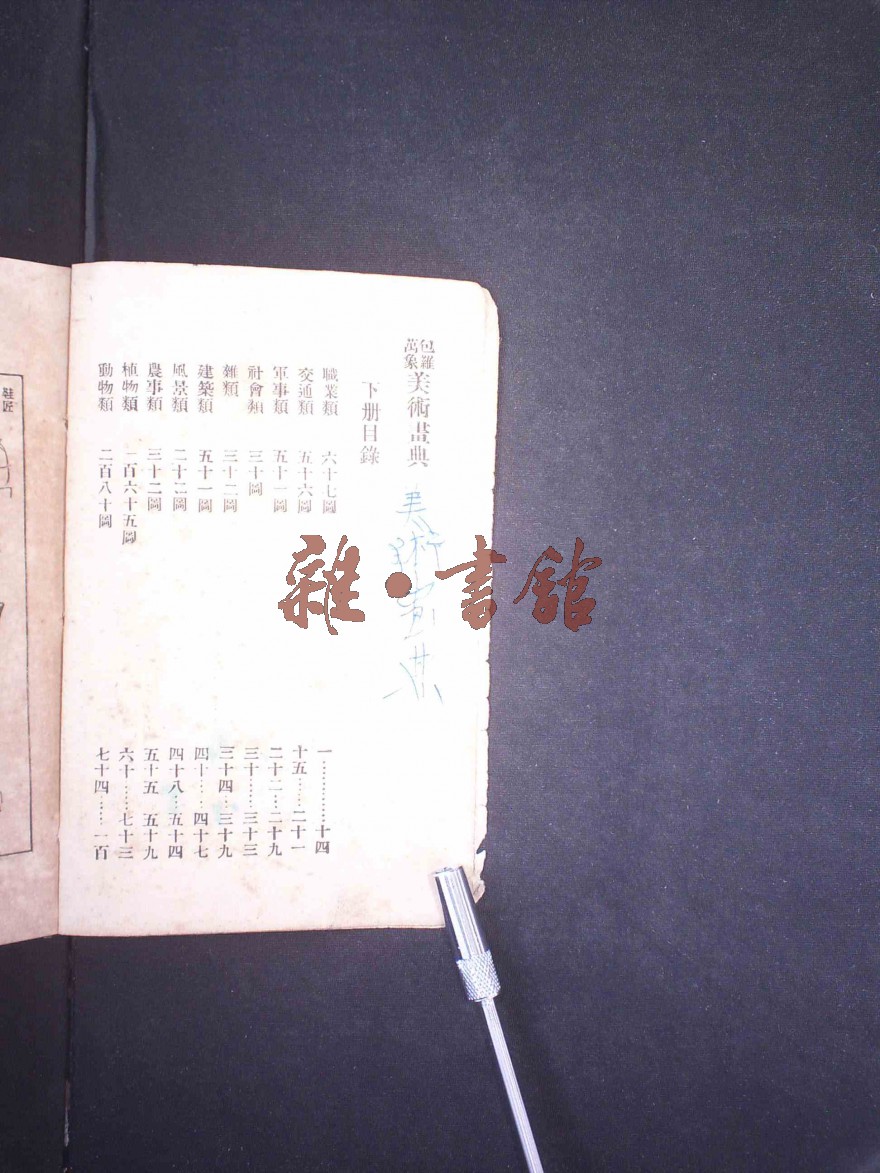 包羅萬象美術畫典
下册目錄
職業類 六十七圖 一……………十四
交通類 五十六圖 十五……二十一
軍事類 五十一圖 二十二…二十九
社會類 三十圖 三十……三十三
雜類 三十二圖 三十四…三十九
建築類 五十一圖 四十……四十七
風景類 二十二圖 四十八…五十四
農事類 三十二圖 五十五 五十九
植物類 一百六十五圖 六十……七十三
動物類 二百八十圖 七十四……一百
美術畫典
雜·書館
鞋匠